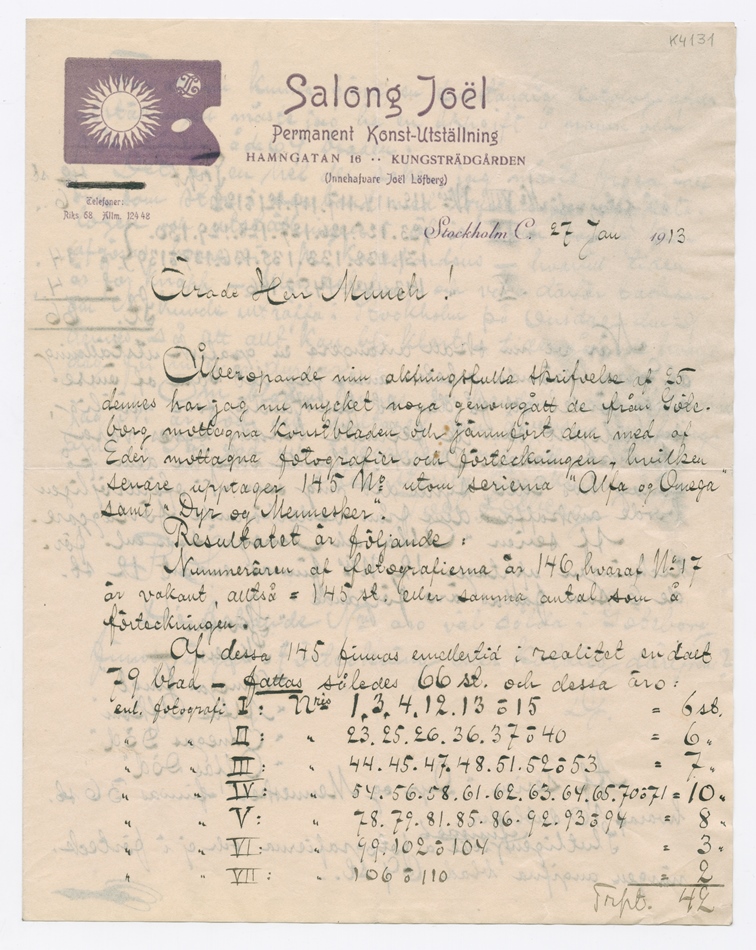 K4131
Salong Joël
Permanent Konst-Utställning
HAMNGATAN 16 ·· KUNGSTRÄDGÅRDEN
(Innehafvare Joël Löfberg)
Telefoner:
Riks 58 Allm. 124 48
Stockholm C. 27 Jan 1913
Ärade Herr Munch!
Åberopande min aktningsfulla skrifvelse af 25
dennes har jag nu mycket noga genomgått de från Göte-
borg mottagna konstbladen och jämnfört dem med af
Eder mottagna fotografier och förteckningen, hvilken
senare upptager 145 No utom serierna "Alfa og Omega"
samt "Dyr og Mennesker".
Resultatet är följande:
Nummerären af fotografierna är 146, hvaraf No 17
är vakant, alltså = 145 st. eller samma antal som å
förteckningen.
Af dessa 145 finnas emellertid i realitet endast
79 blad – fattas således 66 st. och dessa äro:
enl. fotografi I: Nris 1, 3, 4, 12. 13 ö 15 = 6 st.
" " II: " 23. 25. 26. 36. 37 ö 40 = 6 "
" " III: " 44. 45. 47. 48. 51. 52 ö 53 = 7 "
" " IV: " 54. 56. 58. 61. 62. 63. 64. 65. 70 ö 71 = 10 "
" " V: " 78. 79. 81. 85. 86. 92. 93 ö 94 = 8 "
" " VI: " 99. 102 ö 104 = 3 "
" " VII: " 106 ö 110 = 2
Trpt. 42